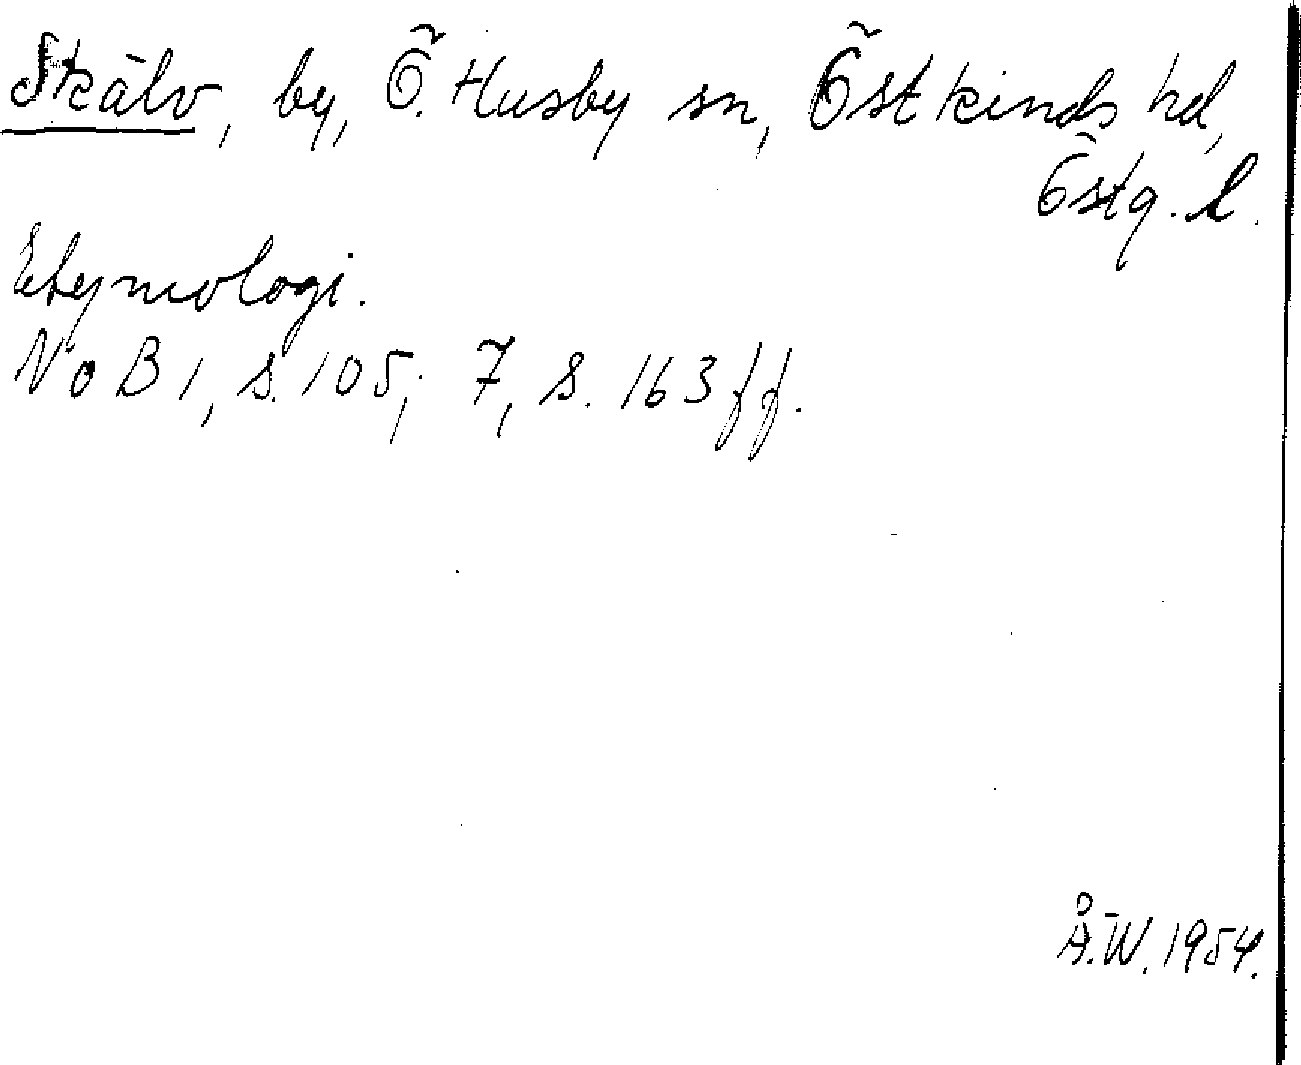 Skälv, by, Ö. Husby sn, Östkinds hd,
Östg. l.
Etymologi.
NoB 1, s. 105; 7, s. 163 ff.
Å.W. 1954.